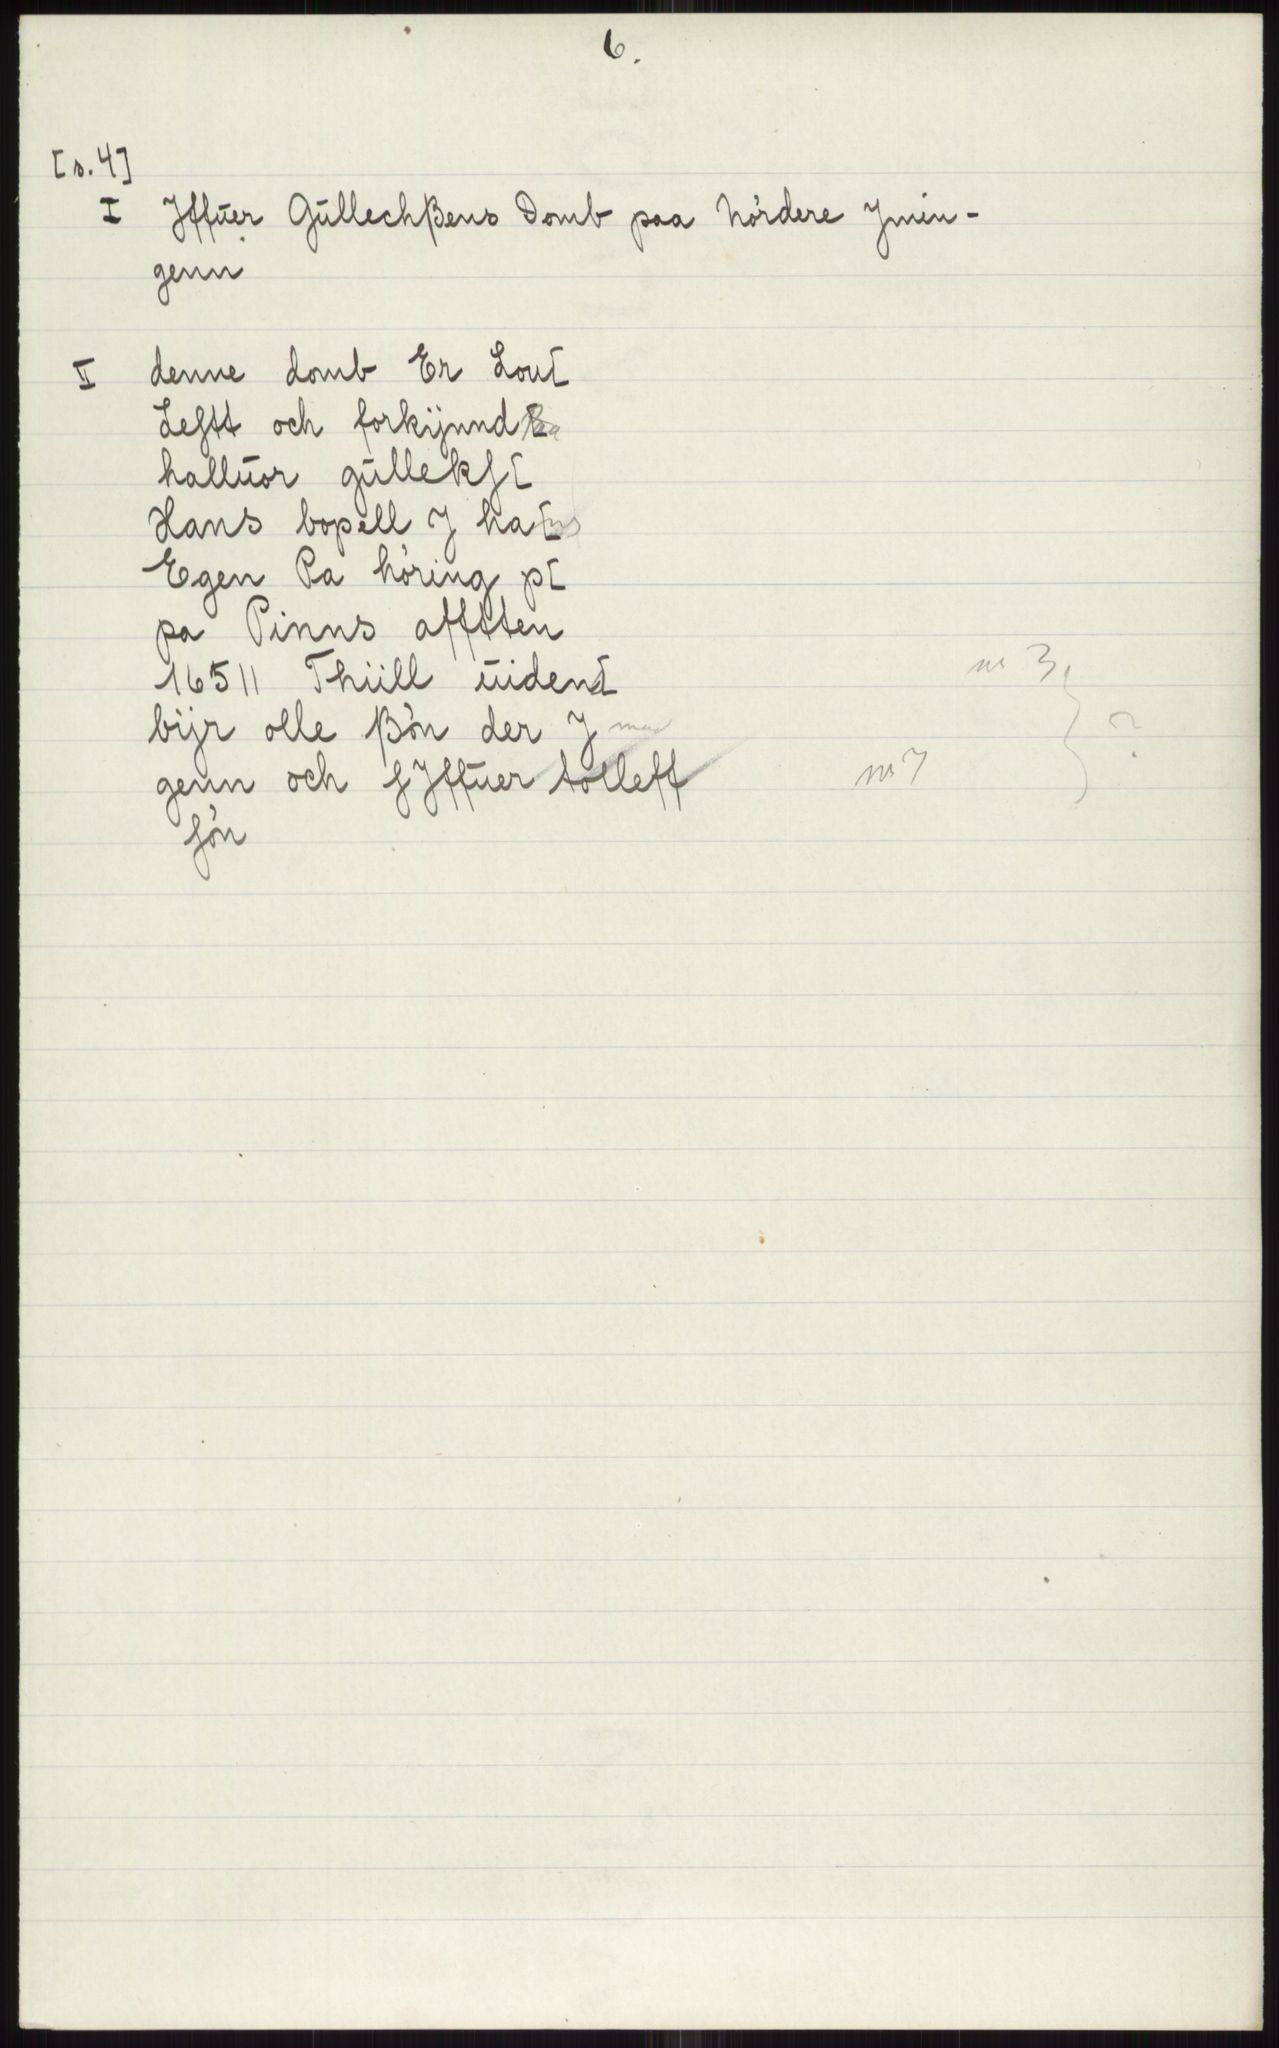 6.
[s.4]
I Jffŭer Gŭllechßens Domb paa Nördere Jmin-
genn
II denne domb Er Lou[
Lestt och forkijnnd[
hallŭor gŭlleks[
Hans bopell J ha[ns
Egen Pa höring p[
pa Pinns afftten
16511 Thiill ŭiden[
bijr olle ßön der J
genn och sJffŭer tolleff
sön
nr 3
nr 7
?